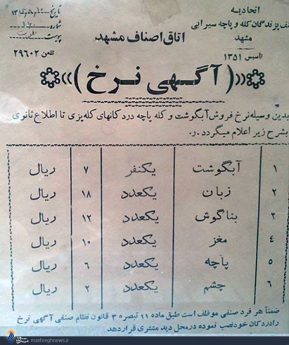 اتحادیه
صنف پزندگان کله و پاچه سیرابی
مشهد
تاسیس ۱۳۵۱
اتاق اصناف مشهد
تاریخ
شماره
پیوست
تلفن ۲۹۶۰۲
»(( آگهی نرخ ))«
بدین وسیله نرخ فروش آبگوشت و کله پاچه در دکانهای کله پزی تا اطلاع ثانوی
بشرح زیر اعلام میگردد.
۱ آبگوشت یکنفر ۷ ریال
۲ زبان یکعدد ۱۸ ریال
۳ بناگوش یکعدد ۱۲ ریال
۴ مغز یکعدد ۱۰ ریال
۵ پاچه یکعدد ۶ ریال
۶ چشم یکعدد ۲ ریال
ضمناً هر فرد صنفی موظف است طبق ماده ۱۱ تبصره ۳ قانون نظام صنفی آگهی نرخ
را در دکان خود نصب نموده در محل دید مشتری قرار دهد
mashreghnews.ir